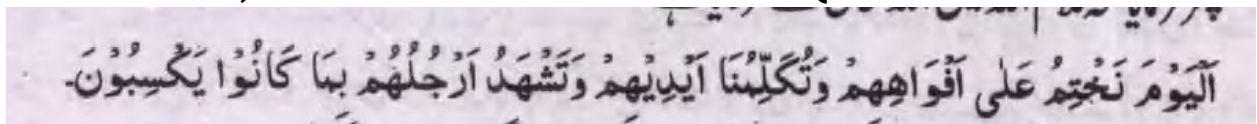 اَلْيَوْمَ نَخْتِمُ عَلٰى اَفْوَاهِهِمْ وَتُكَلِّمُنَا اَيْدِيْهِمْ وَتَشْهَدُ اَرْجُلُهُمْ بِمَا كَانُوْا يَكْسِبُوْنَ۔